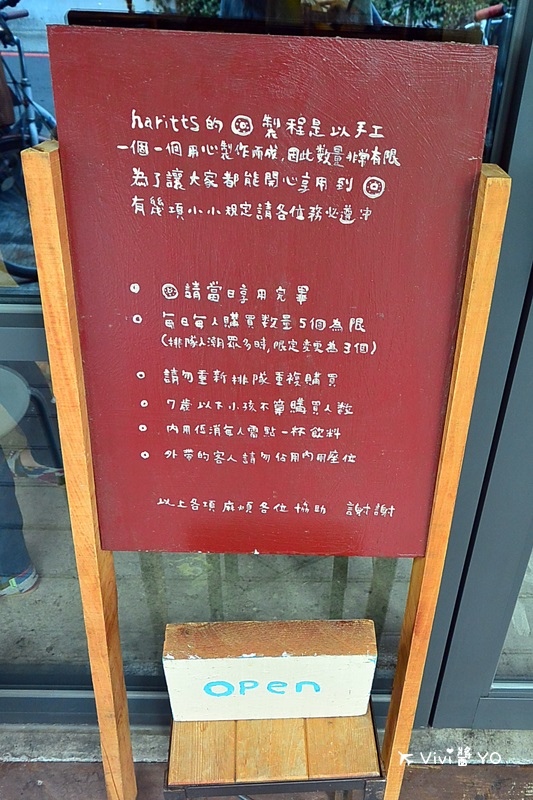 haritts的 製程是以手工
一個一個用心製作而成，因此數量非常有限
為了讓大家都能開心享用到
有幾項小小規定請各位務必遵守
請當日享用完畢
每日每人購買數量5個為限
(排隊人潮眾多時，限定變更為3個)
請勿重新排隊重複購買
7歲以下小孩不算購買人數
內用低消每人需點一杯飲料
外帶的客人請勿佔用內用座位
以上各項麻煩各位協助 謝謝
open
Vivi醬 YO